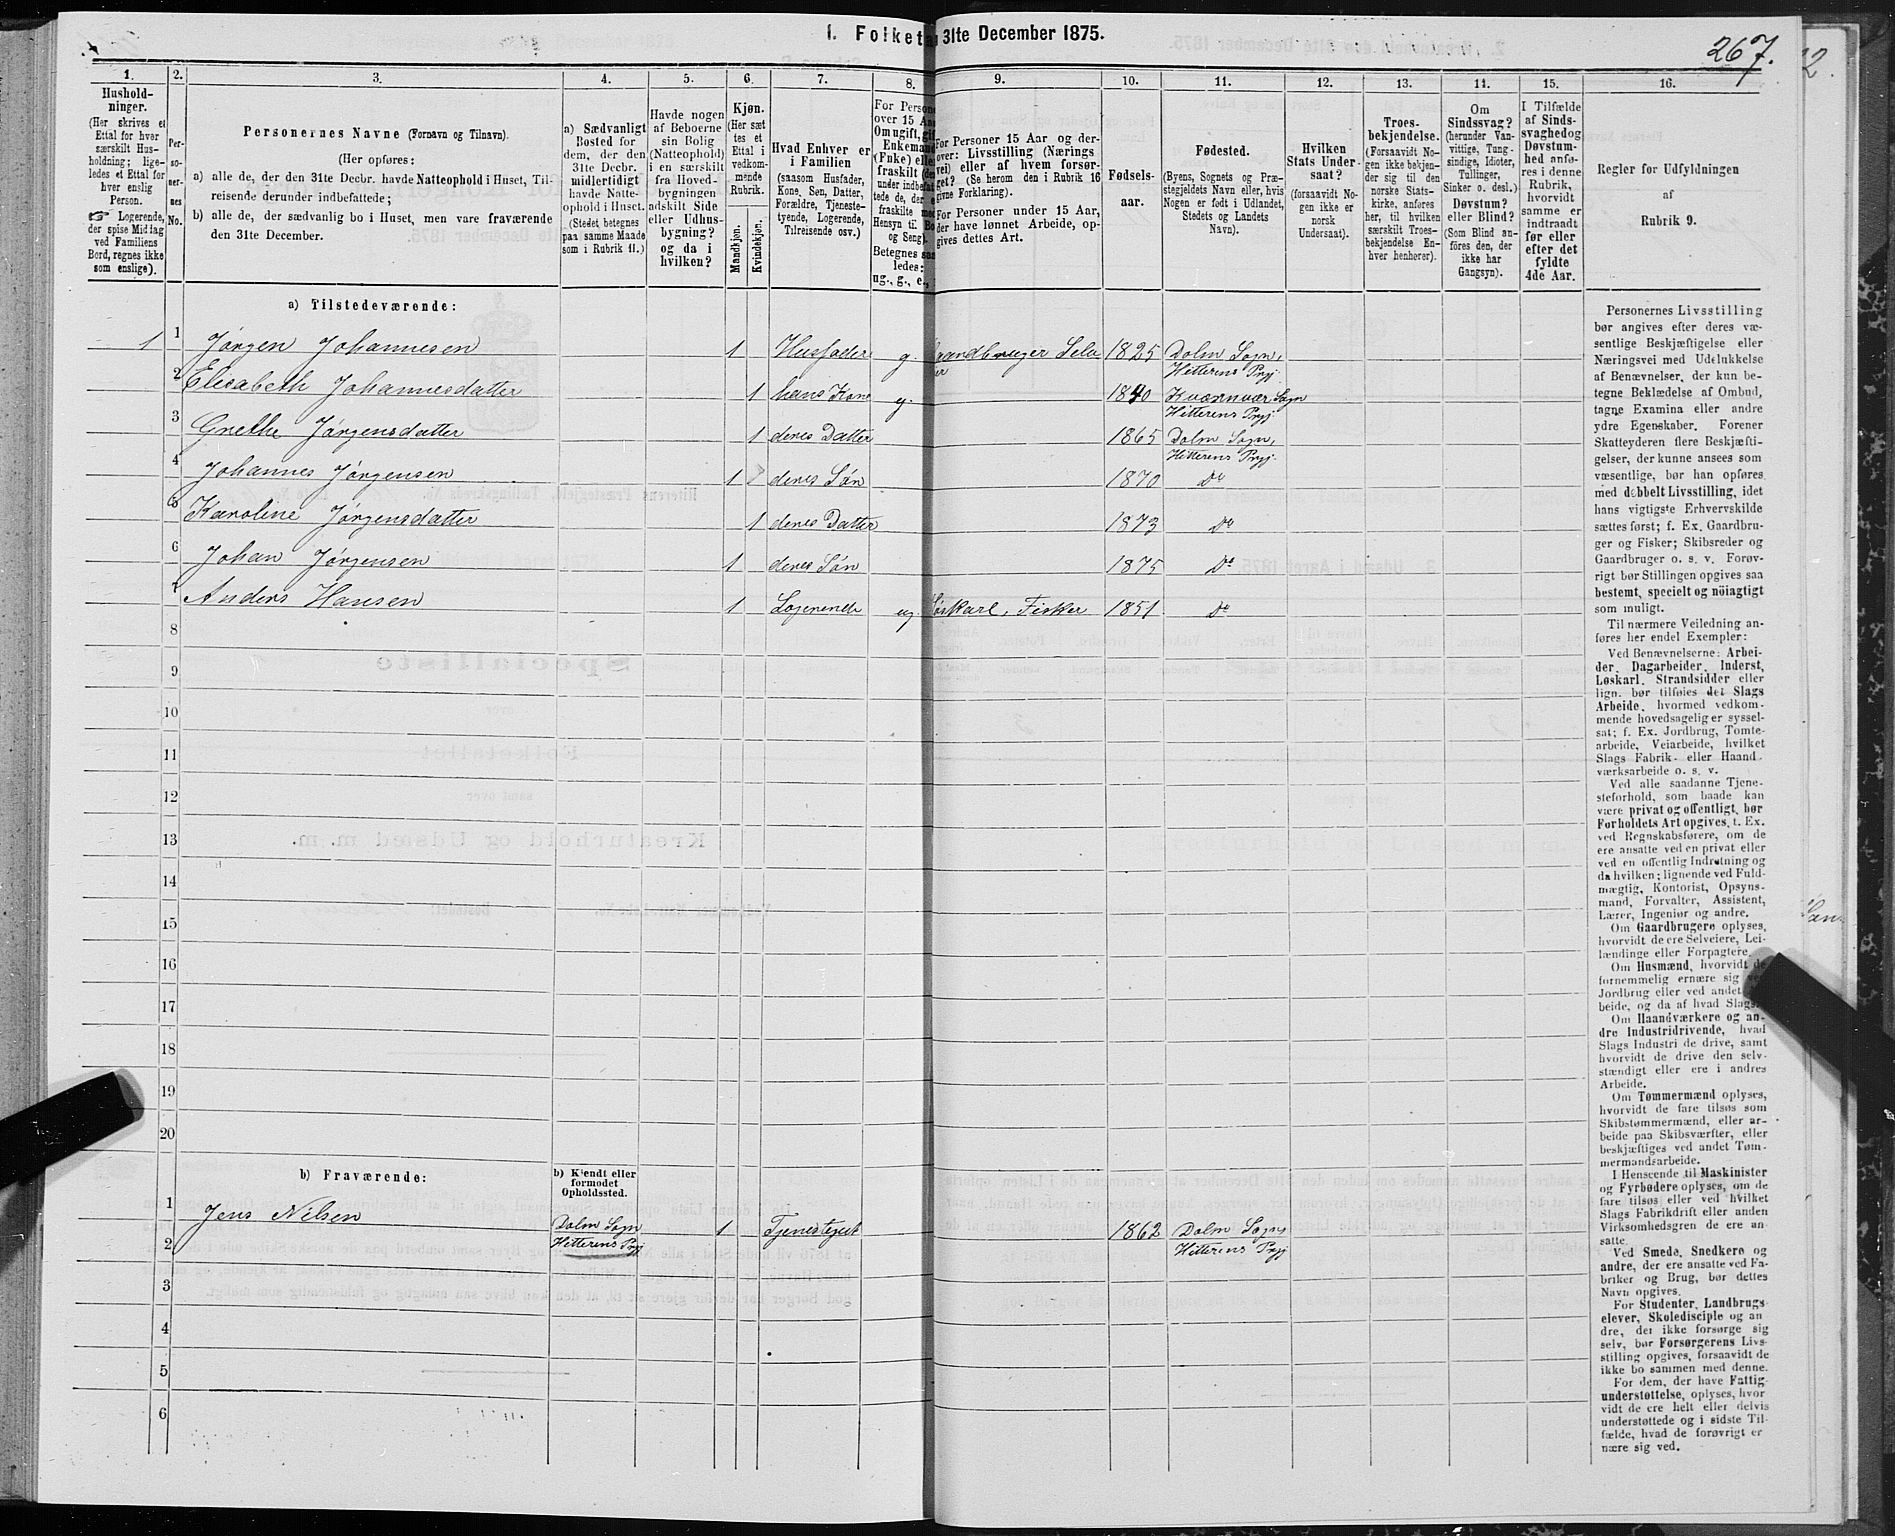 1. Folketa 31te December 1875.
267.
2.
1. 2. 3. 4. 5. 6. 7. 8. 9. 10. 11. 12. 13. 14. 15. 16.
Hushold-
ninger.
(Her skrives et
Ettal for hver
særskilt Hus-
holdning; lige-
ledes et Ettal for
hver enslig
Person.
☞ Logerende,
der spise Middag
ved Familiens
Bord, regnes ikke
som enslige).
Per-
so-
ner-
nes
No.
Personernes Navne (Fornavn og Tilnavn).
(Her opføres:
a) alle de, der den 31te Decbr. havde Natteophold i Huset, Til-
reisende derunder indbefattede;
b) alle de, der sædvanlig bo i Huset, men vare fraværende
den 31te December.
a) Sædvanligt
Bosted for
dem, der den
31te Decbr.
midlertidigt
havde Natte-
ophold i Huset.
(Stedet betegnes
paa samme Maade
som i Rubrik 11.)
Havde nogen
af Beboerne
sin Bolig
(Natteophold)
i en særskilt
fra Hoved-
bygningen
adskilt Side
eller Udhus-
bygning?
og da i
hvilken?
Kjøn.
(Her sæt
tes et
Ettal i
vedkom-
mende
Rubrik.
Mandkjøn.
Kvindekjøn.
Hvad Enhver er
i Familien
(saasom Husfader,
Kone, Søn, Datter,
Forældre, Tjeneste-
tyende, Logerende,
Tilreisende osv.)
For Persone
over 15 Aar
Om ugift, gift
Enkemand
(Enke) eller
fraskilt (der-
under indbefat
tede de, der e
fraskilte med
Hensyn til Bo
og Seng).
Betegnes saa
ledes:
ug., g., e.,
For Personer 15 Aar og der-
over: Livsstilling (Nærings
vei) eller af hvem forsør-
get? (Se herom den i Rubrik 16
givne Forklaring).
For Personer under 15 Aar,
der have lønnet Arbeide, op-
gives dettes Art.
Fødsels-
aar.
Fødested.
(Byens, Sognets og Præ-
stegjeldets Navn eller, hvis
Nogen er født i Udlandet,
Stedets og Landets
Navn).
Hvilken
Stats Under-
saat?
(forsaavidt No-
gen ikke er
norsk
Undersaat).
Troes-
bekjendelse.
(Forsaavidt No-
gen ikke bekjen-
der sig til den
norske Stats-
kirke, anføres
her, til hvilken
særskilt Troes-
bekjendelse En-
hver henhører).
Om
Sindssvag?
(herunder Van-
vittige, Tung-
sindige, Idioter,
Tullinger,
Sinker o. desl.)
Døvstum?
eller Blind?
(Som Blind an-
føres den, der
ikke har
Gangsyn).
I Tilfælde
af Sinds-
svaghedog
Døvstum-
hed anfø-
res i denne
Rubrik,
hvorvidt
samme er
indtraadt
før eller
efter det
fyldte
4de Aar.
Regler for Udfyldningen
af
Rubrik 9.
a) Tilstedeværende:
1 1 Jørgen Johannesen 1 Husfader g. aandbruger Selv 1825 Dolm Sogn,
er Hitterens Pgj
2 Elisabeth Johannesdatter 1 hans Kone g. 1840 Kvænvær Sogn
Hitterens Pgj
3 Grethe Jørgensdatter 1 deres Datter 1865 Dolm Sogn,
Hitterens Pgj.
4 Johannes Jørgensen 1 deres Søn 1870 Do
5 Karoline Jørgensdatter 1 deres Datter 1873 Do
6 Johan Jørgensen 1 deres Søn 1875 Do
7 Anders Hansen 1 Logerende ug øskarl, Fisker 1851 Do
8
9
10
11
12
13
14
15
16
17
18
19
20
b) Fraværende:
b) Kjendt eller
formodet
Opholdssted.
1 Jens Nilsen Dolm Sogn 1 Tjenestegut 1862 Dolm Sogn
2 Hitterens Pgj Hitterens Pgj
3
4
5
6
Personernes Livsstilling
bør angives efter deres væ-
sentlige Beskjæftigelse eller
Næringsvei med Udelukkelse
af Benævnelser, der kun be-
tegne Beklædelse af Ombud,
tagne Examina eller andre
ydre Egenskaber. Forener
Skatteyderen flere Beskjæfti-
gelser, der kunne ansees som
væsentlige, bør han opføres
med dobbelt Livsstilling, idet
hans vigtigste Erhvervskilde
sættes først; f. Ex. Gaardbru-
ger og Fisker; Skibsreder og
Gaardbruger o. s. v. Forøv-
rigt bør Stillingen opgives saa
bestemt, specielt og nøiagtigt
som muligt.
Til nærmere Veiledning an-
føres her endel Exempler:
Ved Benævnelserne: Arbei-
der, Dagarbeider, Inderst,
Løskarl, Strandsidder eller
lign. bør tilføies det Slags
Arbeide, hvormed vedkom-
mende hovedsagelig er syssel-
sat; f. Ex. Jordbrug, Tomte-
arbeide, Veiarbeide, hvilket
Slags Fabrik- eller Haand-
værksarbeide o. s. v.
Ved alle saadanne Tjene-
steforhold, som baade kan
være privat og offentligt, bør
Forholdets Art opgives, t. Ex.
ved Regnskabsførere, om de
ere ansatte ved en privat eller
ved en offentlig Indretning og
da hvilken; lignende ved Fuld-
mægtig, Kontorist, Opsyns-
mand, Forvalter, Assistent,
Lærer, Ingeniør og andre.
Om Gaardbrugere oplyses,
hvorvidt de ere Selveiere, Lei-
lændinge eller Forpagtere.
Om Husmænd, hvorvidt de
fornemmelig ernære sig ved
Jordbrug eller ved andet
beide, og da af hvad Slags.
Om Haandværkere og an-
dre Industridrivende, hvad
Slags Industri de drive, samt
hvorvidt de drive den selv-
stændigt eller ere i andres
Arbeide.
Om Tømmermænd oplyses,
hvorvidt de fare tilsøs som
Skibstømmermænd, eller ar-
beide paa Skibsværfter, eller
beskjæftiges ved andet Tøm-
mermandsarbeide.
I Henseende til Maskinister
og Fyrbødere oplyses, om de
fare tilsøs eller ved hvilket
Slags Fabrikdrift eller anden
Virksomhedsgren de ere an-
satte.
Ved Smede, Snedkere og
andre, der ere ansatte ved Fa-
briker og Brug, bør dettes
Navn opgives.
For Studenter, Landbrugs-
elever, Skoledisciple og an
dre, der ikke forsørge sig
selv, bør Forsørgerens Livs-
stilling opgives, forsaavidt de
ikke bo sammen med denne.
For dem, der have Fattig-
understøttelse, oplyses, hvor
vidt de ere helt eller delvis
understøttede og i sidste Til-
fælde, hvad de forøvrigt er
nære sig ved.